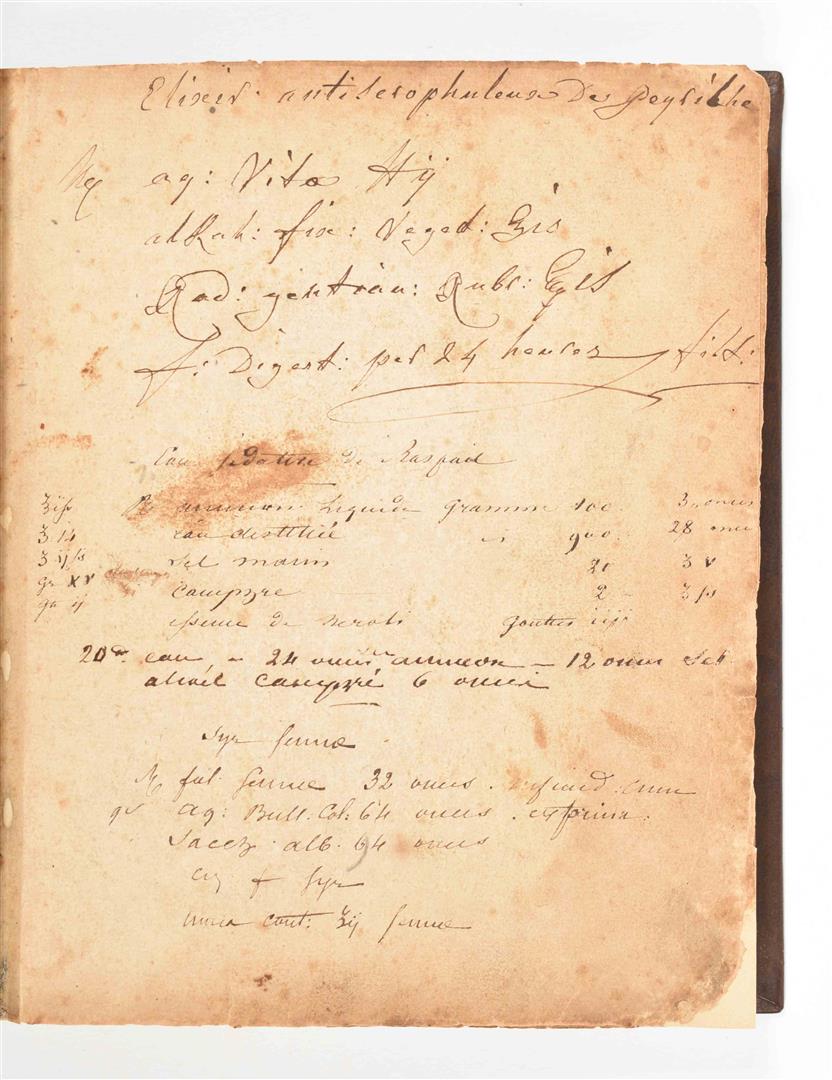 Elixir antiscrophuleux De Peyrilhe
Rx aq: Vitæ ℔ij
alkah: fix: Veged: ʒis
Rad: gentian: Rubr: ʒis
f: Digest: per 24 heures filt:
Eau sedative de Raspail
ʒiſs Rx ammon liquide gramme 100 3 onces
eau distillée 900 28 once
sel marin 20 ʒ v
gr XV Camphre 2 ʒſs
gr ij essence de neroli gouttes iij
20 eau 24 onces ammon 12 onces sel
alcool camphré 6 onces
Syr sennæ
Rx fol. sennæ 32 onces infund cum
aq: Bull: Col: 64 onces exprim:
Sacch alb 64 onces
f Syr
uncia cont: ʒij sennæ